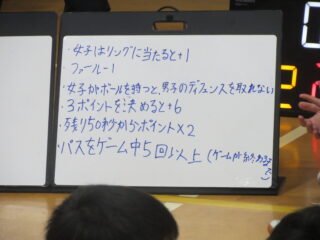 ・女子はリングに当たると+1
・ファール-1
・女子がボールを持つと、男子のディフェンスを取れない
・3ポイントを決めると+6
・残り50秒からポイント×2
・パスをゲーム中5回以上(ゲームが終わるまで)